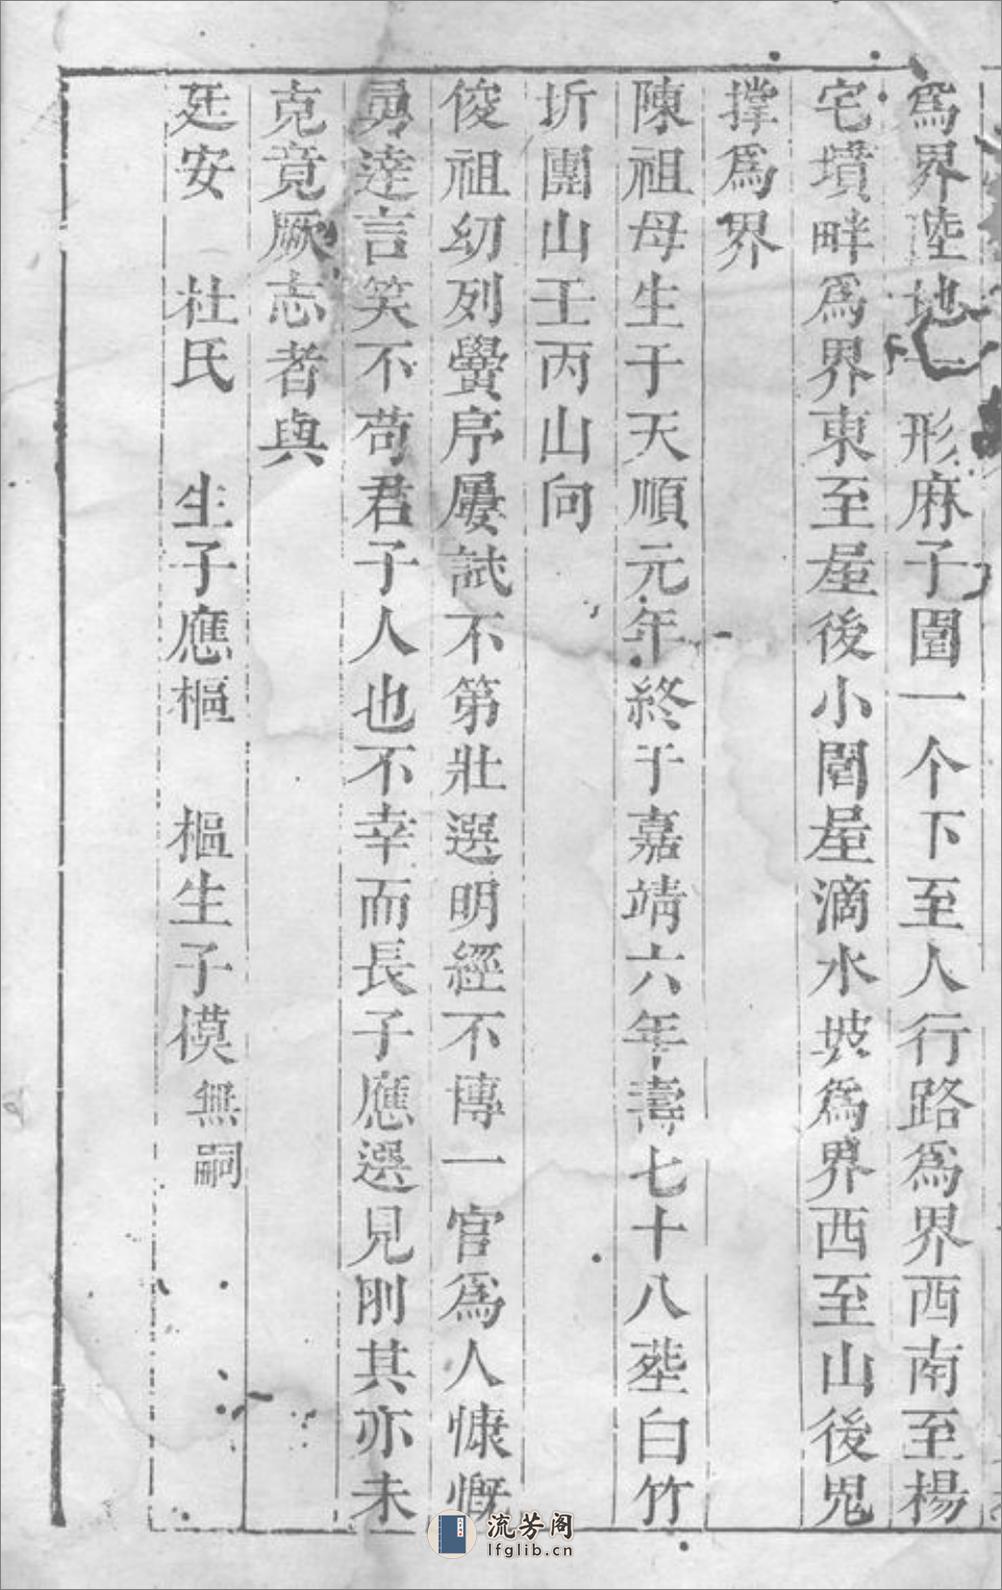 爲界陸地一形麻子園一个下至人行路爲界西南至楊
宅墳畔爲界東至屋後小園屋滴水坡爲界西至山後兇
撑爲界
陳祖母生于天順元年終于嘉靖六年壽七十八塟白竹
圻團山壬丙山向
俊祖幼列黌序屢試不第壯選明經不博一官爲人慷慨
勇達言笑不苟君子人也不幸而長子應選見刖其亦未
克竟厥志者與
廷安 杜氏 生子應樞 樞生子模無嗣
流芳阁
lfglib.cn